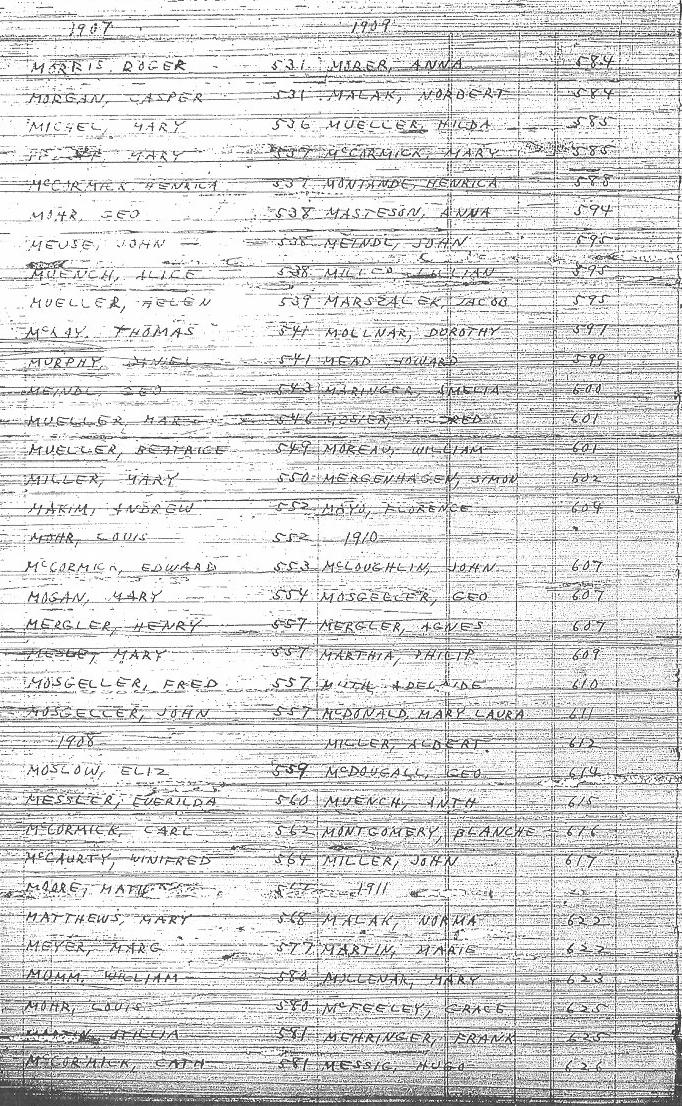 1907 1909
MORRIS ROGER 531 MORER, ANNA 584
MORGAN, CASPER 531 MALAK, NORBERT 584
MICHEL, MARY 536 MUELLER, HILDA 585
MARY 537 MCCORMICK, MARY 585
MCCORMICK HENRICA 537 MONTANDE, HENRICA 588
MOHR, GEO 538 MASTESON, ANNA 594
MEUSE, JOHN 538 MEINDL, JOHN 595
MUENCH, ALICE 538 LILLIAN 595
MUELLER, HELEN 539 MARSZALEK, JACOB 595
MCKAY, THOMAS 541 MOLLNAR, DOROTHY 597
MURPHY, DANIEL 541 MEAD HOWARD 599
MEINDL, GEO 543 MARINGER, 600
MUELLER, 546 MOSIER, 601
MUELLER, BEATRICE 549 MOREAU, WILLIAM 601
MILLER, MARY 550 MERGENHAGEN, SIMON 602
MAKIM, ANDREW 552 MAYO, FLORENCE 604
MOHR, LOUIS 552 1910
MCCORMICK, EDWARD 553 MCLOUGHLIN, JOHN 607
MOGAN, MARY 554 MOSGELLER, GEO 607
MERGLER, HENRY 557 MERGLER, AGNES 607
MARY 557 MARTHIA, PHILIP 609
MOSGELLER, FRED 557 MUTH, ADELAIDE 610
MOSGELLER, JOHN 557 MCDONALD, MARY LAURA 611
1908 MILLER, ALBERT 612
MOSLOW, ELIZ 559 MCDOUGALL, GEO 614
MESSLER, EVERILDA 560 MUENCH, ANTH 615
MCCORMICK, CARL 562 MONTGOMERY, BLANCHE 616
MCCAURTY, WINIFRED 564 MILLER, JOHN 617
MOORE, 1911
MATTHEWS, MARY 568 MALAK, NORMA 622
MEYER, MARG 577 MARTIN, MARIE 622
MUMM, WILLIAM 580 MOLLENAR, MARY 623
MOHR, LOUIS 580 MCFEELEY, GRACE 625
MARTIN, OTILLIA 581 MEHRINGER, FRANK 625
MCCORMICK, CATH 581 MESSIG, HUGO 626